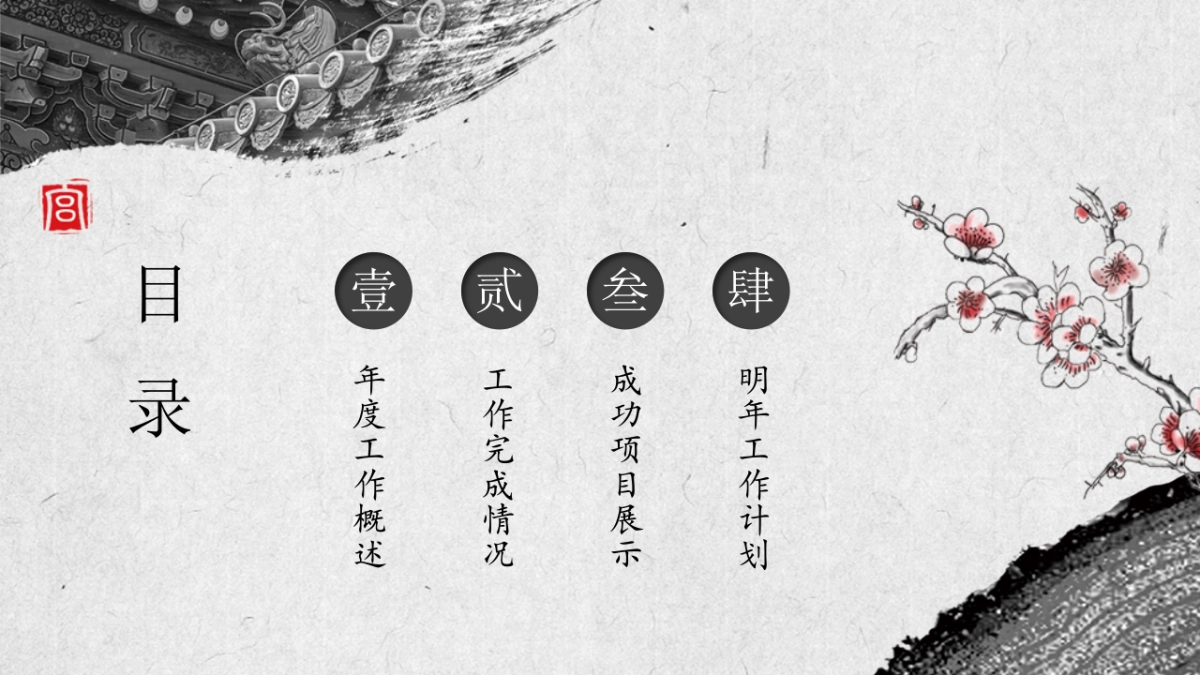 宫
目录
壹
年度工作概述
贰
工作完成情况
叁
成功项目展示
肆
明年工作计划